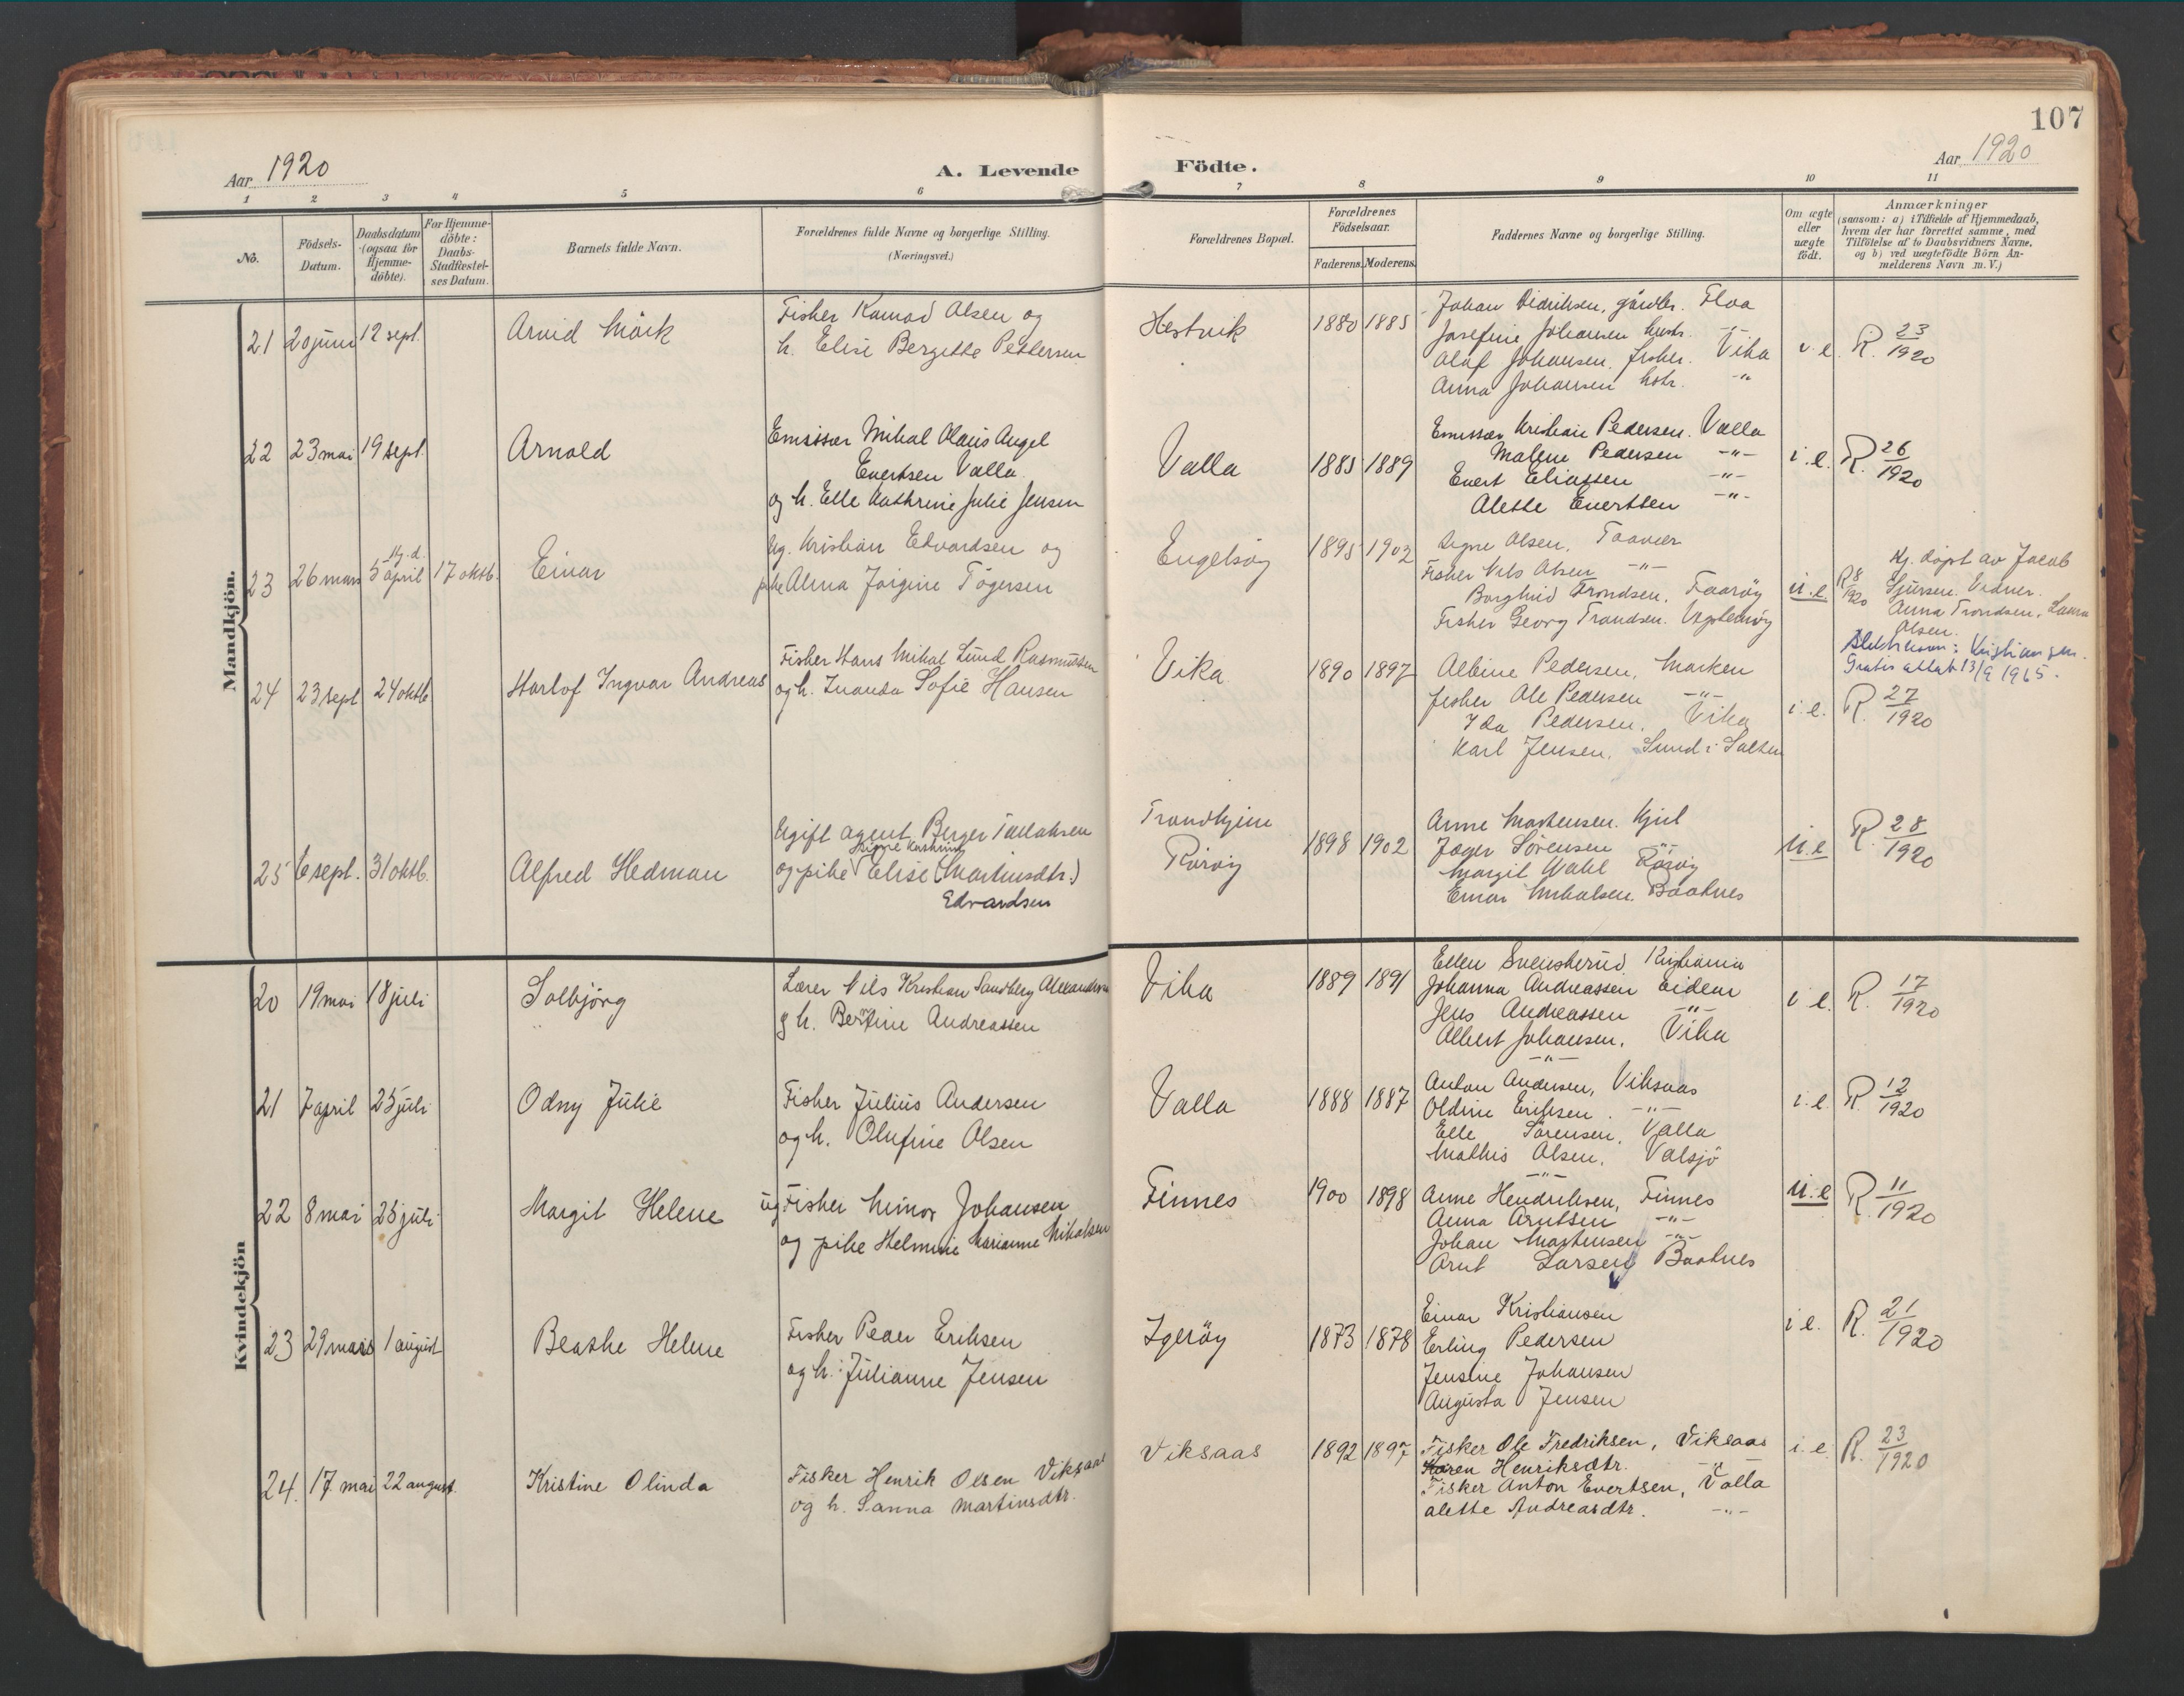 107
Aar 1920
A. Levende Födte.
Aar 1920
1 2 3 4 5 6 7 8 9 10 11
No.
Födsels-Datum.
Daabsdatum (ogsaa for Hjemmedöbte).
For Hjemmedöbte: Daabs-Stadfæstelses Datum.
Barnets fulde Navn.
Forældrenes fulde Navne og borgerlige Stilling.
(Næringsvei.)
Forældrenes Bopæl.
Forældrenes Födselsaar.
Faderens. Moderens.
Faddernes Navne og borgerlige Stilling.
Om ægte eller uægte födt.
Anmærkninger
(saasom: a) i Tilfælde af Hjemmedaab,
hvem der har forrettet samme, med
Tilföielse af to Daabsvidners Navne,
og b) ved uægtefödte Börn Anmelderens Navn m.V.)
Mandkjön.
21 20 juni 12 sept. Arvid Mörk
Fisker Konrad Olsen og
h. Elise Bergitte Pettersen
Hestvik 1880 1885
Johan Didriksen, gårdbr. Floa
Josefine Johansen hustr. -"-
Olaf Johansen, fisker. Vika
Anna Johansen hstr. -"-
i. e. R. 23/1920
22 23 mai 19 sept. Arnold
Emissær Mikal Olaus Angel
Evertsen Valla
og h. Elle Kathrine Julie Jensen
Valla 1885 1889
Emissær Kristian Pedersen. Valla
Malene Pedersen -"-
Evert Eliassen -"-
Alette Evertsen -"-
i. e. R. 26/1920
23 26 mars Hj. d. 5 april 17 oktb. Einar
Ug. Kristian Edvardsen og
pike Alma Jörgine Tögersen
Engelsøy 1895 1902
Signe Olsen, Taavær
Fisker Nils Olsen -"-
Borghild Trondsen, Faarøy
Fisker Georg Trondsen. Vegstenøy
u. e. R 8/1920
Hj. döpt av Jacob
Sjursen. Vidner.
Anna Trondsen, Laura
Olsen.
Kristiansen.
Gratis attest 13/9 1965.
24 23 sept 24 oktb Harlof Ingvar Andreas
Fisker Hans Mikal Lund Rasmussen
og h. Inanda Sofie Hansen
Vika 1890 1897
Albine Pedersen, Marken
fisker Ole Pedersen -"-
Ida Pedersen. Vika
Karl Jensen, Lund i Salten
i. e. R. 27/1920
25 6 sept. 31 oktb. Alfred Hedman
Ugift agent Berger Tollaksen
og pike Elise (Martinsdtr.)
Edvardsen
Trondhjem
Rörøy
1898 1902
Anne Martensen. Kjul
Jager Sörensen -"-
Margit Wahl Rörøy
Einar Mikalsen. Baaknes
u. e R. 28/1920
Kvindekjön
20 19 mai 18 juli Solbjörg
Lærer Nils Kristian Sandberg Alexandersen
g h. Bertine Andreassen
Vika 1889 1891
Ellen Svensherud Kristiania
Johanna Andreassen Eidem
Jens Andreassen -"-
Albert Johansen, Vika
-"-
i e. R. 17/1920
21 7 april 25 juli Odny Julie
Fisker Julius Andersen
og h. Olufine Olsen
Valla 1888 1887
Anton Andersen, Viksaas
Oldine Eriksen. -"-
Elle Sörensen, Valla
Mathis Olsen, Valsjö
-"-
i. e. R. 12/1920
22 8 mai 25 juli Margit Helene
ug Fisker Minor Johansen
og pike Helmine Marianne Mikalsen
Finnes 1900 1898
Anne Hendriksen, Finnes
Anna Arntsen -"-
Johan Martensen -"-
Arnt Larsen Baaknes
u. e R. 11/1920
23 29 mars 1 august Beathe Helene
Fisker Peder Eriksen
og h. Julianne Jensen
Igeröy 1873 1878
Einar Kristiansen
Erling Pedersen
Jensine Johansen
Augusta Jensen
i e. R. 21/1920
24. 17 mai 22 august. Kristine Olinda
Fisker Henrik Olsen Viksaas
og h. Sanna Martinsdtr.
Viksaas 1892 1897
Fisker Ole Fredriksen, Viksaas
Karen Henriksdtr. -"-
Fisker Anton Evertsen, Valla
Alette Andreasdtr. -"-
i. e. R. 23/1920